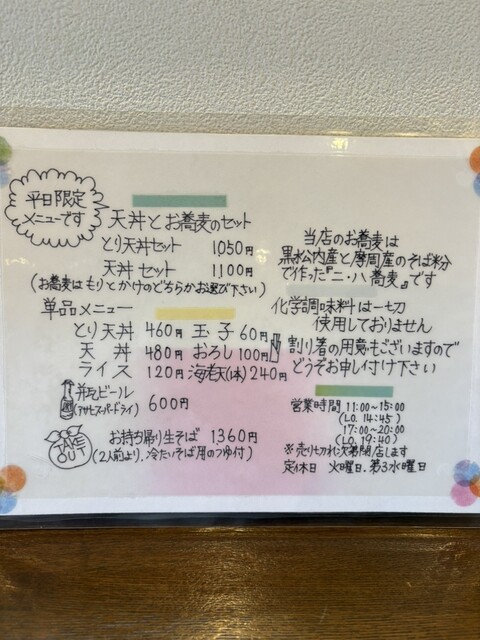 平日限定
メニューです
天丼とお蕎麦のセット
とり天丼セット 1050円
天丼セット 1100円
(お蕎麦はもりとかけのどちらかお選び下さい)
単品メニュー
とり天丼 460円 玉子 60円
天丼 480円 おろし 100円
ライス 120円 海老天(1本) 240円
瓶ビール
(アサヒスーパードライ) 600円
TAKE OUT
お持ち帰り生そば 1360円
(2人前より、冷たいそば用のつゆ付)
当店のお蕎麦は
黒松内産と摩周産のそば粉
で作った『二・八蕎麦』です
化学調味料は一切
使用しておりません
割り箸の用意もございますので
どうぞお申し付け下さい
営業時間 11:00~15:00
(LO.14:45)
17:00~20:00
(LO.19:40)
※売り切れ次第閉店します
定休日 火曜日.第3水曜日